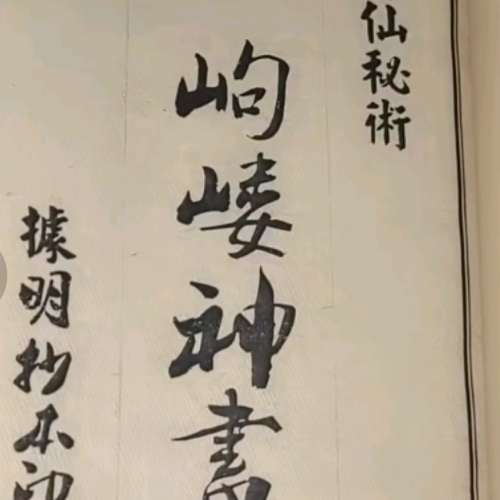 仙秘術
岣嶁神書
據明抄本印